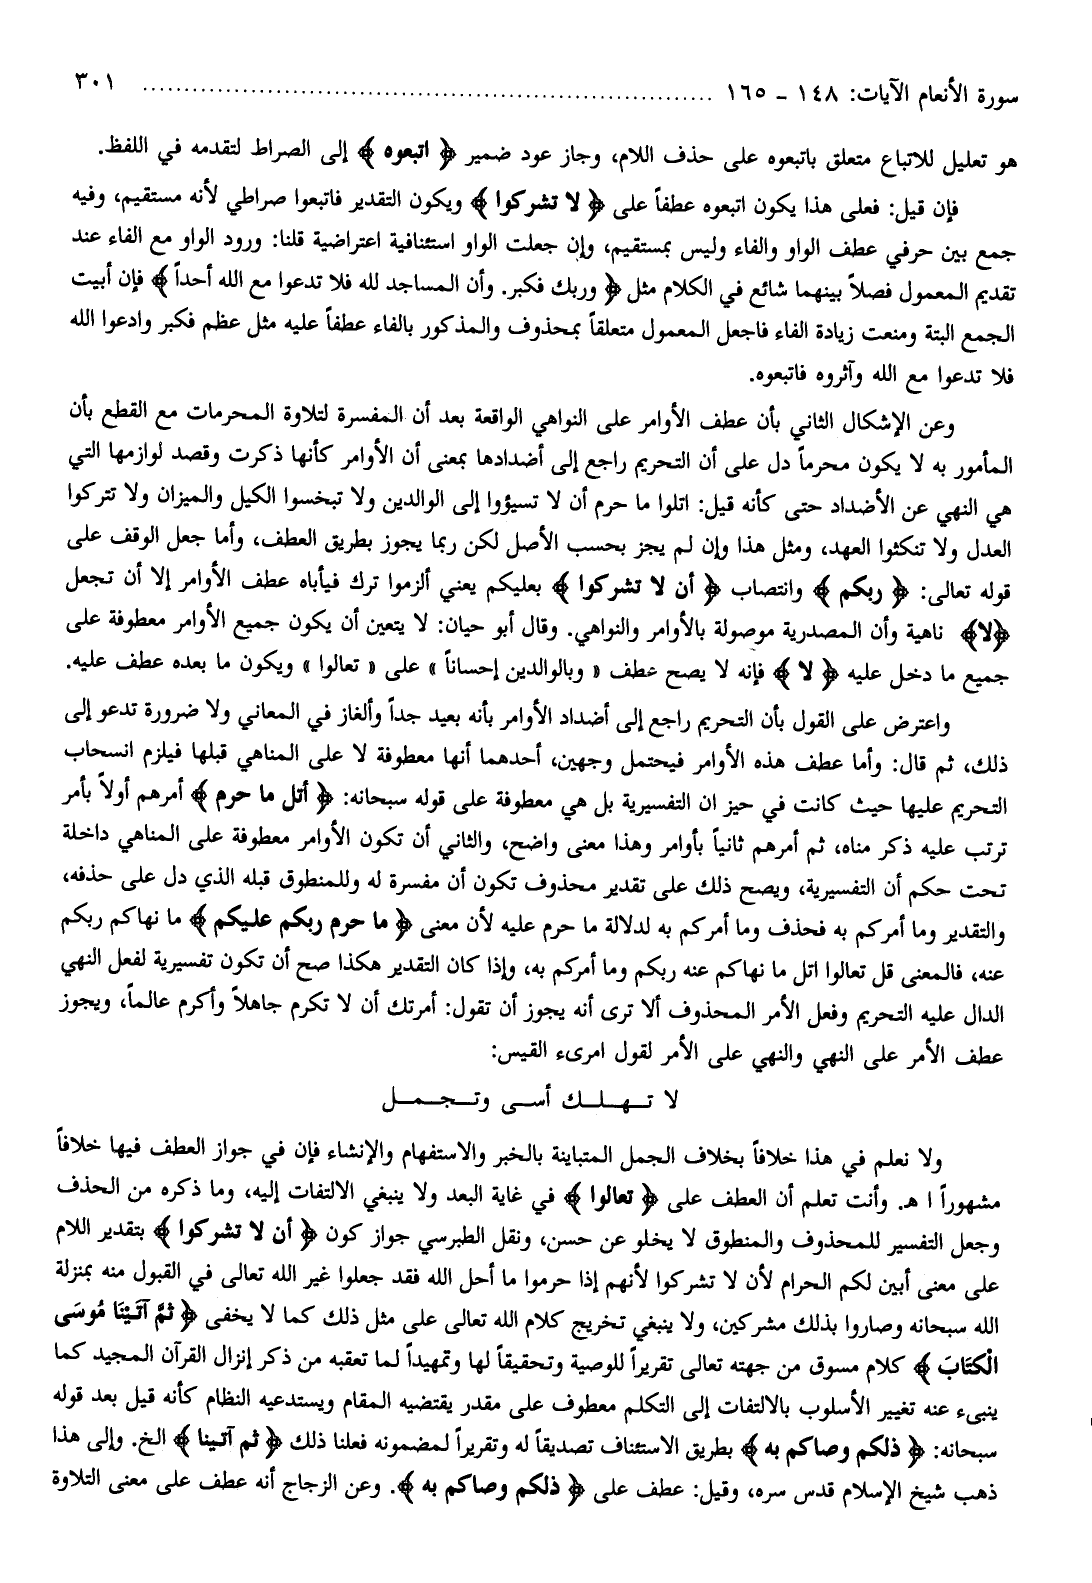 سورة الأنعام الآيات: ١٤٨ ـ ١٦٥ ................................................ ٣٠١
هو تعليل للاتباع متعلق باتبعوه على حذف اللام، وجاز عود ضمير ﴿ اتبعوه ﴾ إلى الصراط لتقدمه في اللفظ.
فإن قيل: فعلى هذا يكون اتبعوه عطفاً على ﴿ لا تشركوا ﴾ ويكون التقدير فاتبعوا صراطي لأنه مستقيم، وفيه
جمع بين حرفي عطف الواو والفاء وليس بمستقيم، وإن جعلت الواو استئنافية اعتراضية قلنا: ورود الواو مع الفاء عند
تقديم المعمول فصلاً بينهما شائع في الكلام مثل ﴿ وربك فكبر. وأن المساجد لله فلا تدعوا مع الله أحداً ﴾ فإن أبيت
الجمع البتة ومنعت زيادة الفاء فاجعل المعمول متعلقاً بمحذوف والمذكور بالفاء عطفاً عليه مثل عظم فكبر وادعوا الله
فلا تدعوا مع الله وآثروه فاتبعوه.
وعن الإشكال الثاني بأن عطف الأوامر على النواهي الواقعة بعد أن المفسرة لتلاوة المحرمات مع القطع بأن
المأمور به لا يكون محرماً دل على أن التحريم راجع إلى أضدادها بمعنى أن الأوامر كأنها ذكرت وقصد لوازمها التي
هي النهي عن الأضداد حتى كأنه قيل: اتلوا ما حرم أن لا تسيؤوا إلى الوالدين ولا تبخسوا الكيل والميزان ولا تتركوا
العدل ولا تنكثوا العهد، ومثل هذا وإن لم يجز بحسب الأصل لكن ربما يجوز بطريق العطف، وأما جعل الوقف على
قوله تعالى: ﴿ ربكم ﴾ وانتصاب ﴿ أن لا تشركوا ﴾ بعليكم يعني ألزموا ترك فيأباه عطف الأوامر إلا أن تجعل
﴿لا﴾ ناهية وأن المصدرية موصولة بالأوامر والنواهي. وقال أبو حيان: لا يتعين أن يكون جميع الأوامر معطوفة على
جميع ما دخل عليه ﴿ لا ﴾ فإنه لا يصح عطف « وبالوالدين إحساناً » على « تعالوا » ويكون ما بعده عطف عليه.
واعترض على القول بأن التحريم راجع إلى أضداد الأوامر بأنه بعيد جداً وألغاز في المعاني ولا ضرورة تدعو إلى
ذلك، ثم قال: وأما عطف هذه الأوامر فيحتمل وجهين، أحدهما أنها معطوفة لا على المناهي قبلها فيلزم انسحاب
التحريم عليها حيث كانت في حيز ان التفسيرية بل هي معطوفة على قوله سبحانه: ﴿ أتل ما حرم ﴾ أمرهم أولاً بأمر
ترتب عليه ذكر مناه، ثم أمرهم ثانياً بأوامر وهذا معنى واضح، والثاني أن تكون الأوامر معطوفة على المناهي داخلة
تحت حكم أن التفسيرية، ويصح ذلك على تقدير محذوف تكون أن مفسرة له وللمنطوق قبله الذي دل على حذفه،
والتقدير وما أمركم به فحذف وما أمركم به لدلالة ما حرم عليه لأن معنى ﴿ ما حرم ربكم عليكم ﴾ ما نهاكم ربكم
عنه، فالمعنى قل تعالوا اتل ما نهاكم عنه ربكم وما أمركم به، وإذا كان التقدير هكذا صح أن تكون تفسيرية لفعل النهي
الدال عليه التحريم وفعل الأمر المحذوف ألا ترى أنه يجوز أن تقول: أمرتك أن لا تكرم جاهلاً وأكرم عالماً، ويجوز
عطف الأمر على النهي والنهي على الأمر لقول امرىء القيس:
لا تهلك أسى وتجمل
ولا نعلم في هذا خلافاً بخلاف الجمل المتباينة بالخبر والاستفهام والإنشاء فإن في جواز العطف فيها خلافاً
مشهوراً ا هـ. وأنت تعلم أن العطف على ﴿ تعالوا ﴾ في غاية البعد ولا ينبغي الالتفات إليه، وما ذكره من الحذف
وجعل التفسير للمحذوف والمنطوق لا يخلو عن حسن، ونقل الطبرسي جواز كون ﴿ أن لا تشركوا ﴾ بتقدير اللام
على معنى أبين لكم الحرام لأن لا تشركوا لأنهم إذا حرموا ما أحل الله فقد جعلوا غير الله تعالى في القبول منه بمنزلة
الله سبحانه وصاروا بذلك مشركين، ولا ينبغي تخريج كلام الله تعالى على مثل ذلك كما لا يخفى ﴿ ثمَّ آتَيْنَا مُوسَى
الْكتَابَ ﴾ كلام مسوق من جهته تعالى تقريراً للوصية وتحقيقاً لها وتمهيداً لما تعقبه من ذكر إنزال القرآن المجيد كما
ينبىء عنه تغيير الأسلوب بالالتفات إلى التكلم معطوف على مقدر يقتضيه المقام ويستدعيه النظام كأنه قيل بعد قوله
سبحانه: ﴿ ذلكم وصاكم به ﴾ بطريق الاستئناف تصديقاً له وتقريراً لمضمونه فعلنا ذلك ﴿ ثم آتينا ﴾ الخ. وإلى هذا
ذهب شيخ الإسلام قدس سره، وقيل: عطف على ﴿ ذلكم وصاكم به ﴾. وعن الزجاج أنه عطف على معنى التلاوة